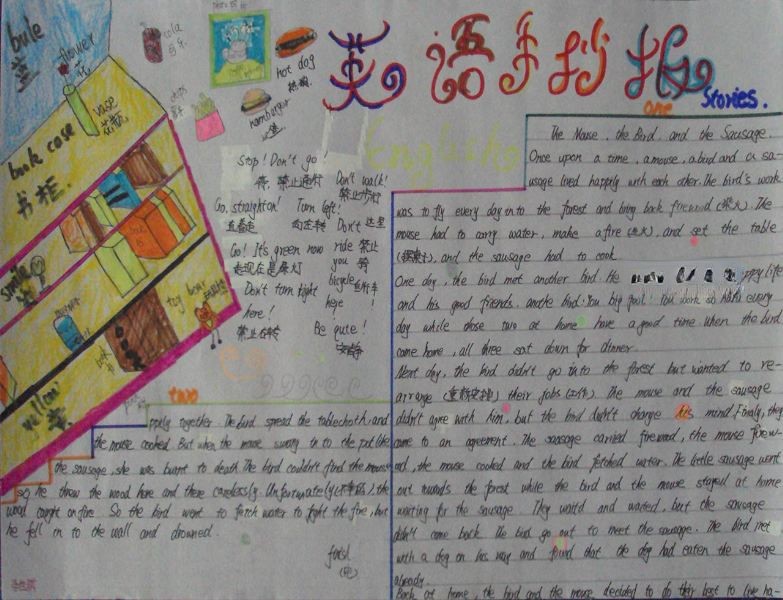 英语手抄报
one
Stories.
English
bule
蓝
flower
花
vase
花瓶
book case
书柜.
smile
cola
可乐
hot dog
热狗
chips
hamburger
汉堡
toy bear
yellow
Stop! Don't go!
禁止通行
Don't walk!
禁止步行
Go straighton!
直着走
Turn left!
向左转
Don't 这里
Go! It's green now
走现在是绿灯
ride 禁止
you 骑
bicycle 自行车
Don't turn tight
here!
禁止右转
here
!
Be quite!
安静
The Mouse, the Bird and the Sausage
Once upon a time, a mouse, a bird and a sa-
usage lived happily with each other. The bird's work
was to fly every day into the forest and bring back firewood (柴火). The
mouse had to carry water, make a fire (生火), and set the table
(摆桌子), and the sausage had to cook.
One day, the bird met another bird. He ppy life
and his good friends. anothe bird: You big fool! You work so hard every
day while those two at home have a good time when the bird
came home, all three sat down for dinner.
Next day, the bird didn't go into the forest but wanted to re-
arrange (重新安排) their jobs (工作). The mouse and the sausage
didn't agree with him, but the bird didn't change his mind. Finaly, they
came to an agreement. The sausage carried firewood, the mouse firew-
od, the mouse cooked and the bird fetched water. The little sausage went
out rounds the forest while the bird and the mouse stayed at home
waiting for the sausage. They waitd and waited, but the sausage
didn't come back. The bird go out to meet the sausage. The bird met
with a dog on his way and found that the dog had eaten the sausage
already.
Back at home, the bird and the mouse decided to do their best to live ha-
two
ppily together. The bird spread the tablechoth, and
the mouse cooked. But when the mouse swung in to the pot like
the sausage, she was burnt to death. The bird couldn't find the mouse
so he threw the wood here and there carelessly. Unfortunately (不幸的), the
wood caught on fire. So the bird went to fetch water to fight the fire, but
he fell in to the wall and drowned.